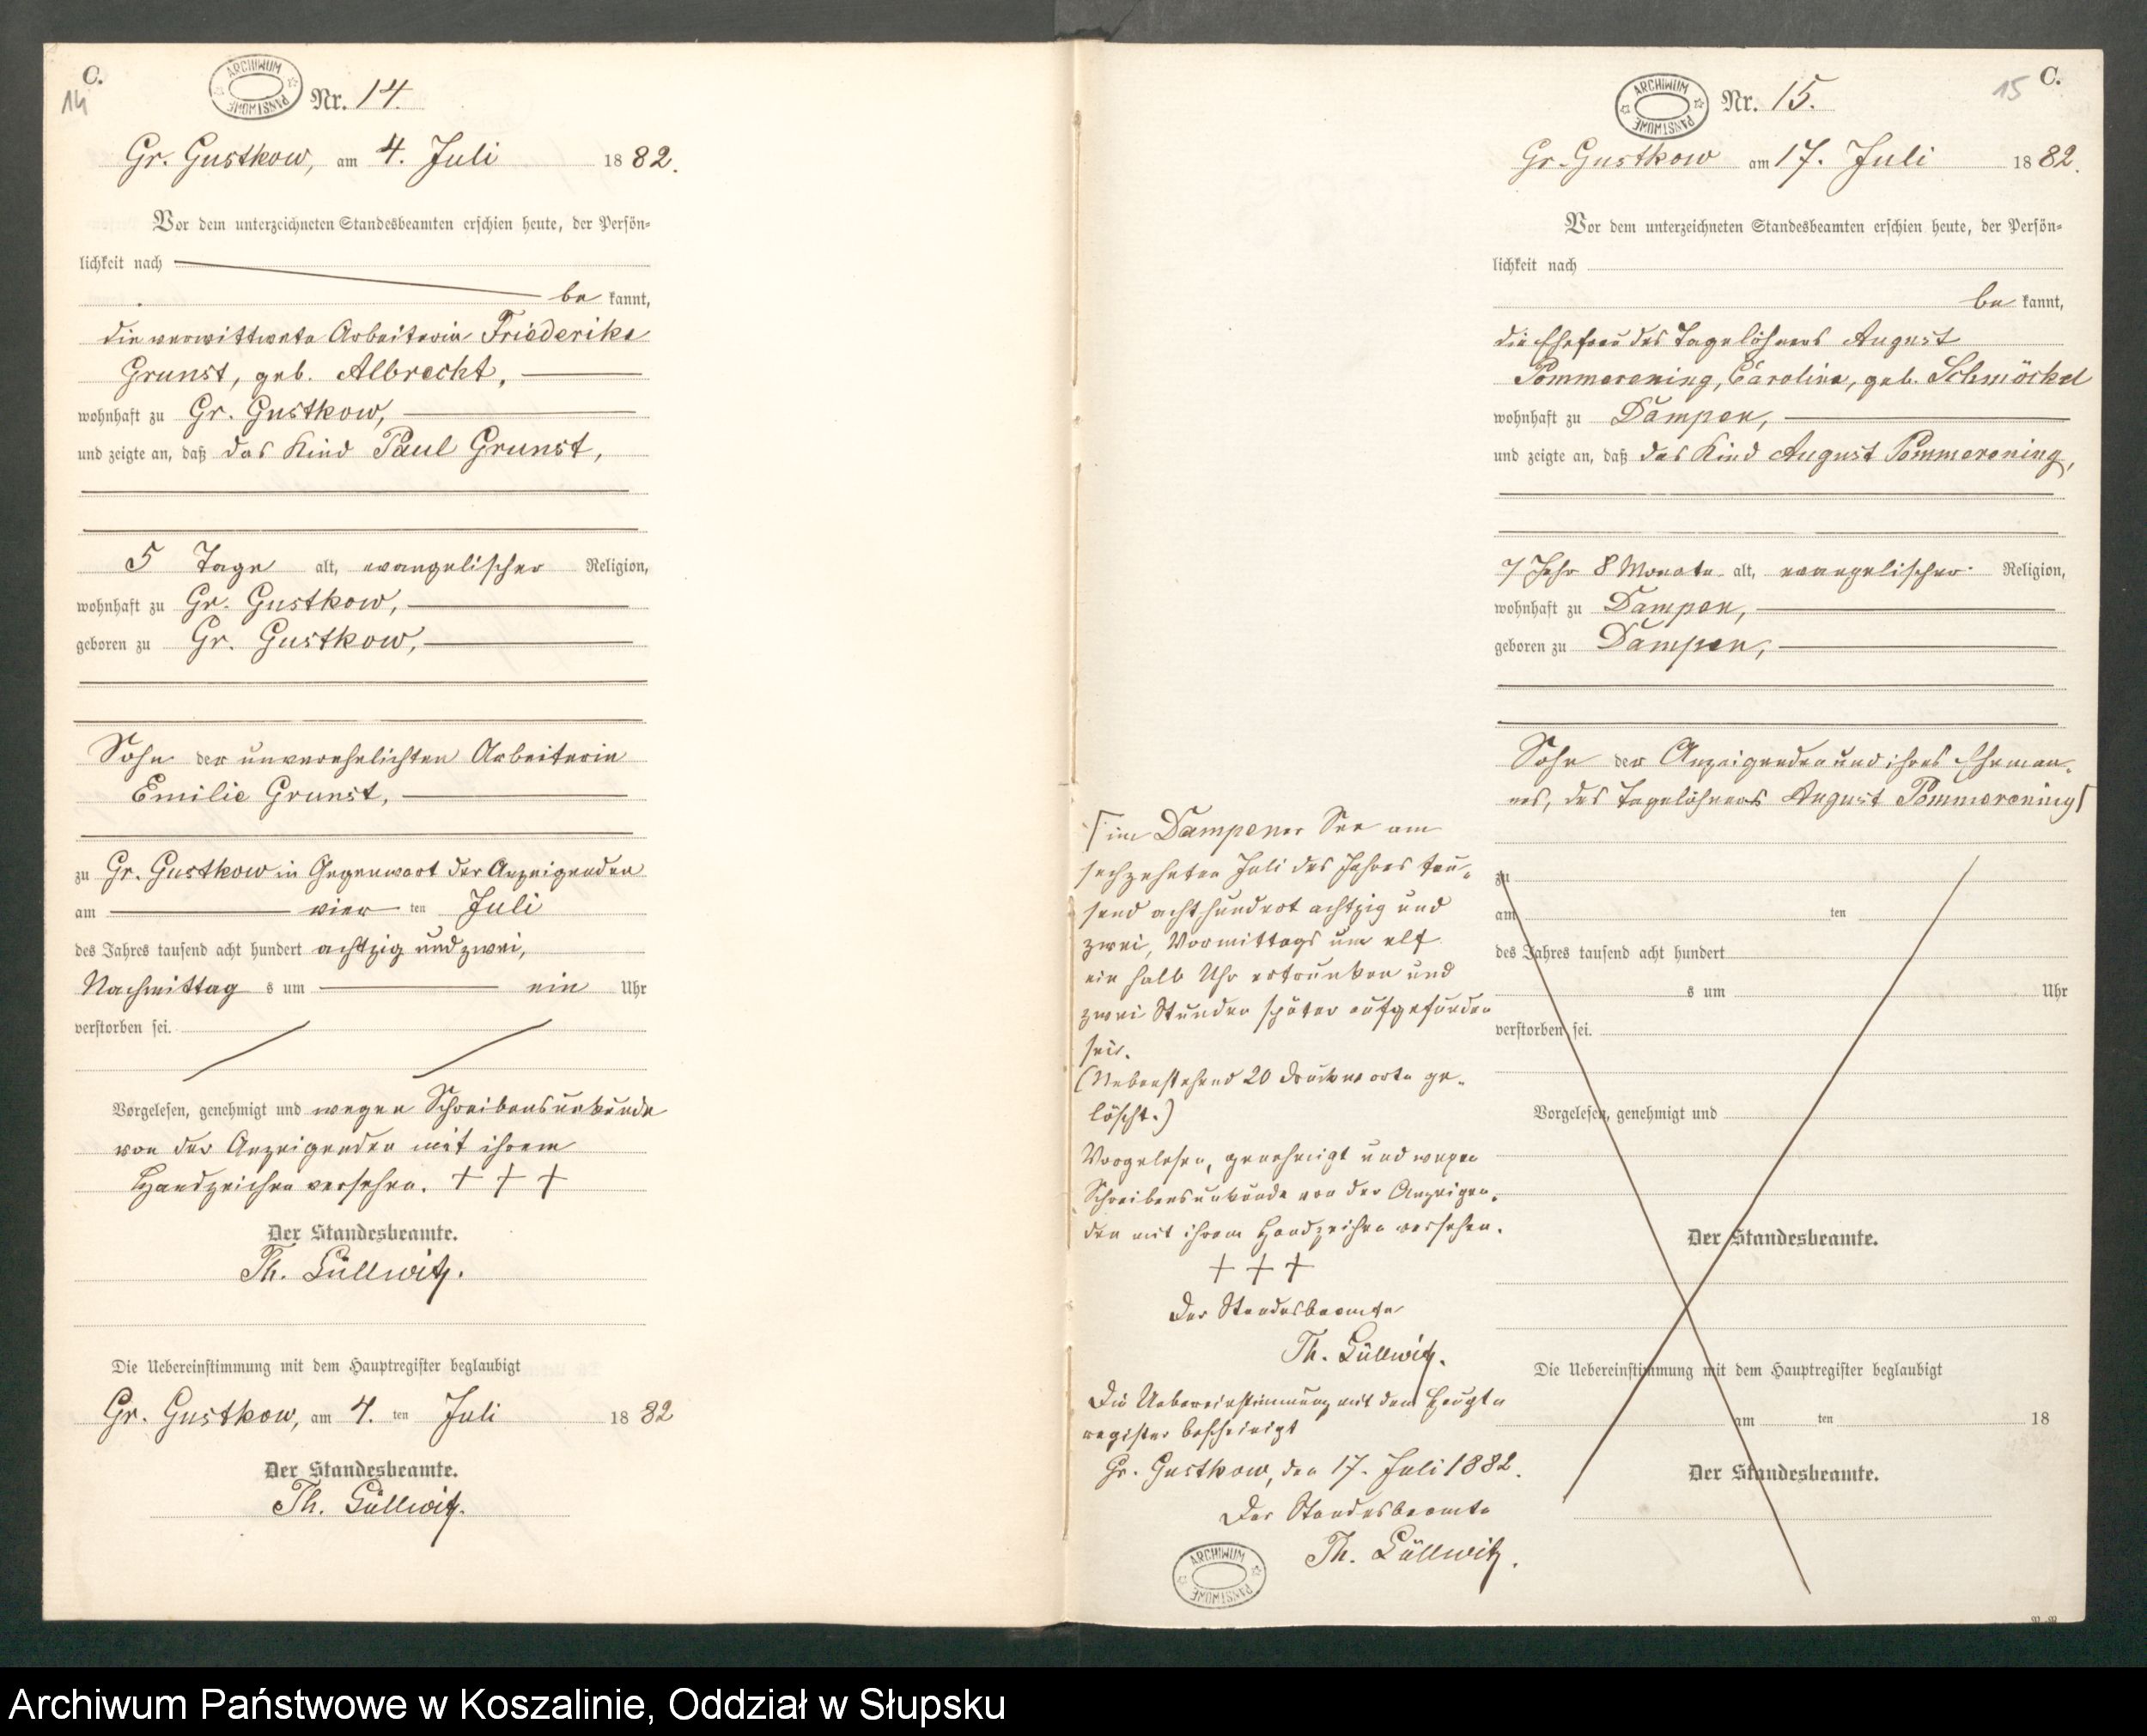 C.
14
ARCHIWUM PAŃSTWOWE
Nr. 14.
Gr. Gustkow, am 4. Juli 1882.
Vor dem unterzeichneten Standesbeamten erschien heute, der Persön-
lichkeit nach
be kannt,
die verwittwete Arbeiterin Friederike
Grunst, geb. Albrecht,
wohnhaft zu Gr. Gustkow,
und zeigte an, daß das Kind Paul Grunst,
5 Tage alt, evangelischer Religion,
wohnhaft zu Gr. Gustkow,
geboren zu Gr. Gustkow,
Sohn der unverehelichten Arbeiterin
Emilie Grunst,
zu Gr. Gustkow in Gegenwart der Anzeigenden
am vier ten Juli
des Jahres tausend acht hundert achtzig und zwei,
Nachmittag s um ein Uhr
verstorben sei.
Vorgelesen, genehmigt und wegen Schreibensunkunde
von der Anzeigenden mit ihrem
Handzeichen versehen. + + +
Der Standesbeamte.
Th. Güllwitz.
Die Uebereinstimmung mit dem Hauptregister beglaubigt
Gr. Gustkow, am 4. ten Juli 1882
Der Standesbeamte.
Th. Güllwitz.
15 C.
ARCHIWUM PAŃSTWOWE
Nr. 15.
Gr. Gustkow am 17. Juli 1882.
Vor dem unterzeichneten Standesbeamten erschien heute, der Persön-
lichkeit nach
be kannt,
die Ehefrau des Tagelöhners August
Pommerening, Caroline, geb. Schmöckel
wohnhaft zu Dampen,
und zeigte an, daß das Kind August Pommerening,
7 Jahr 8 Monate alt, evangelischer Religion,
wohnhaft zu Dampen,
geboren zu Dampen,
Sohn der Anzeigenden und ihres Eheman-
nes, des Tagelöhners August Pommerening
zu
am ten
des Jahres tausend acht hundert
s um Uhr
verstorben sei.
Vorgelesen, genehmigt und
Der Standesbeamte.
Die Uebereinstimmung mit dem Hauptregister beglaubigt
am ten 18
Der Standesbeamte.
im Dampener See am
sechzehnten Juli des Jahres tau-
send acht hundert achtzig und
zwei, Vormittags um elf
ein halb Uhr ertrunken und
zwei Stunden später aufgefunden
sei.
(Nebenstehend 20 Druckworte ge-
löscht.)
Vorgelesen, genehmigt und wegen
Schreibensunkunde von der Anzeigen-
den mit ihrem Handzeichen versehen.
+ + +
Der Standesbeamte
Th. Güllwitz.
Die Uebereinstimmung mit dem Haupt
register bescheinigt
Gr. Gustkow, den 17. Juli 1882.
Der Standesbeamte
Th. Güllwitz.
ARCHIWUM PAŃSTWOWE
Archiwum Państwowe w Koszalinie, Oddział w Słupsku